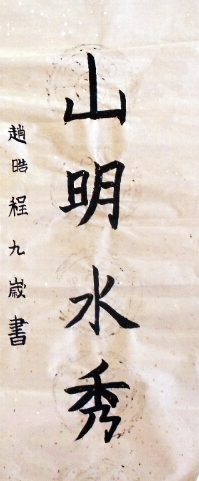 山明水秀
趙晧程九歲書